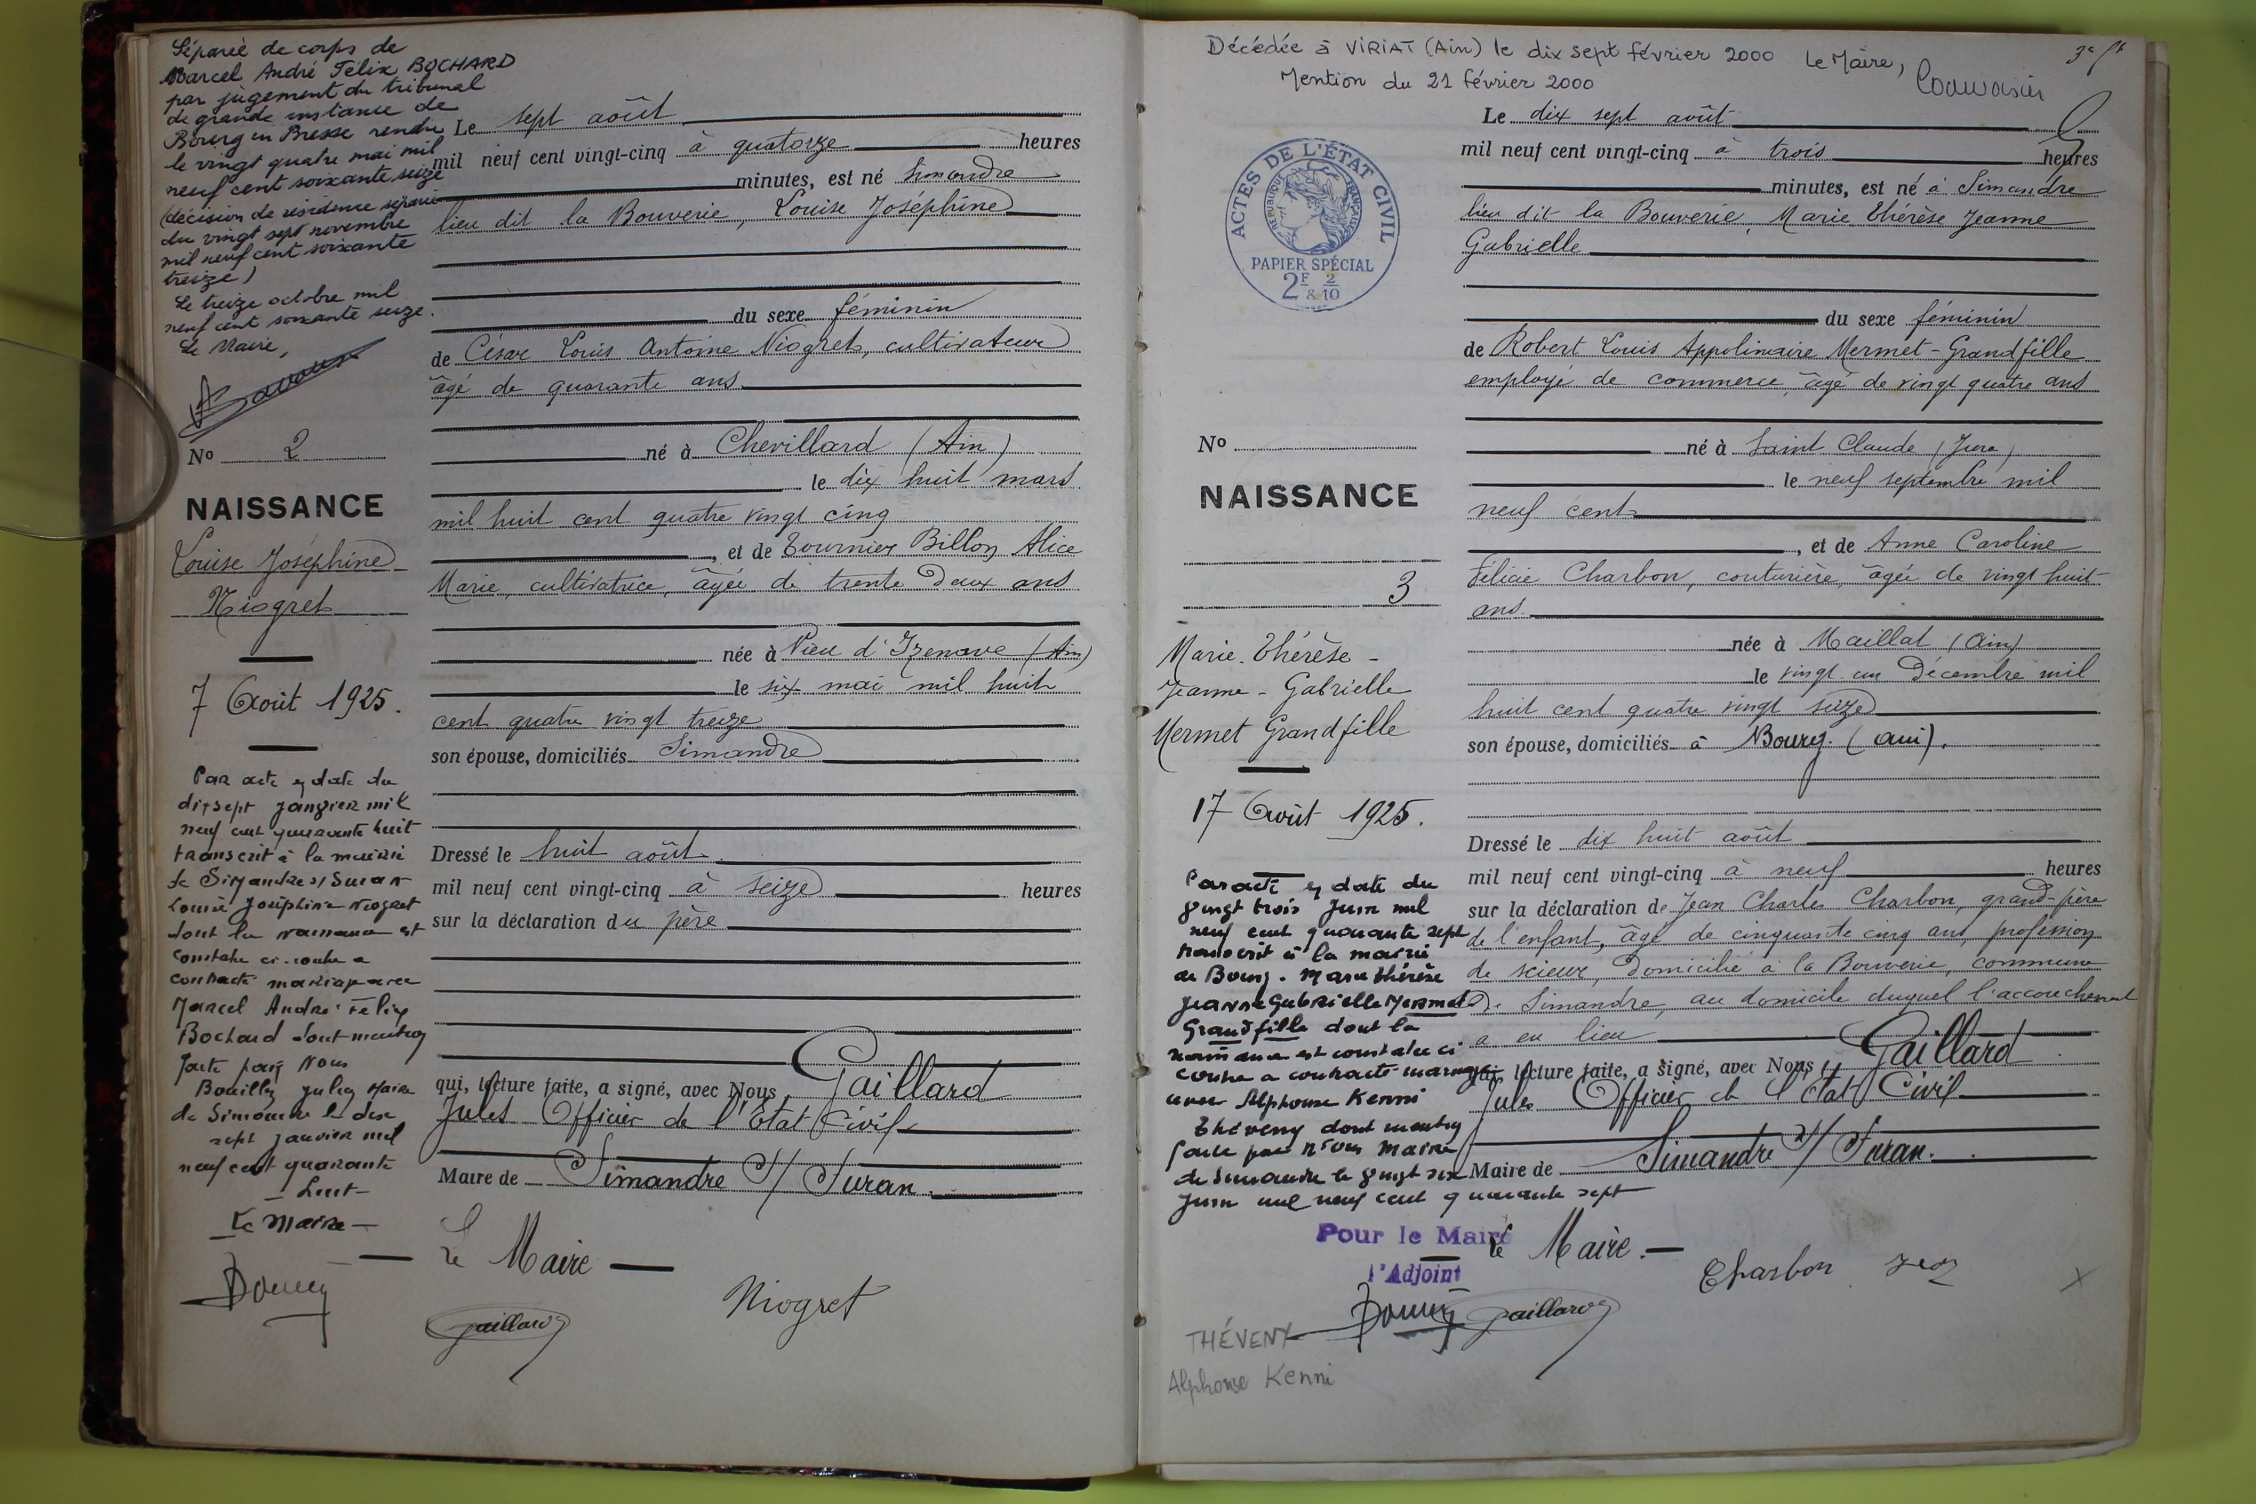 Séparée de corps de
Marcel André Félix BOCHARD
par jugement du tribunal
de grande instance de
Bourg en Bresse rendu
le vingt quatre mai mil
neuf cent soixante seize
(décision de résidence séparée
du vingt sept novembre
mil neuf cent soixante
treize)
Le treize octobre mil
neuf cent soixante seize.
Le Maire,
No 2
NAISSANCE
Louise Joséphine
Niogret
7 Août 1925.
Par acte en date du
dix sept janvier mil
neuf cent quarante huit
transcrit à la mairie
de Simandre s/ Suran
Louise Joséphine Niogret
dont la naissance est
constatée ci-contre a
contracté mariage avec
Marcel André Félix
Bochard dont mention
faite par Nous
Bouilloz Julien Maire
de Simandre le dix
sept janvier mil
neuf cent quarante
huit
Le Maire
Le sept août
mil neuf cent vingt-cinq à quatorze heures
minutes, est né Simandre
lieu dit la Bouverie, Louise Joséphine
du sexe féminin
de César Louis Antoine Niogret, cultivateur
âgé de quarante ans
né à Chevillard (Ain)
le dix huit mars
mil huit cent quatre vingt cinq
, et de Tournier Billon Alice
Marie, cultivatrice, âgée de trente deux ans
née à Vieu d'Izenave (Ain)
le six mai mil huit
cent quatre vingt treize
son épouse, domiciliés Simandre
Dressé le huit août
mil neuf cent vingt-cinq à seize heures
sur la déclaration du père
qui, lecture faite, a signé, avec Nous, Gaillard
Jules Officier de l'Etat Civil
Maire de Simandre s/ Suran.
Le Maire
Gaillard
Niogret
Décédée à VIRIAT (Ain) le dix sept février 2000 Le Maire,
Mention du 21 février 2000
ACTES DE L'ÉTAT CIVIL
RÉPUBLIQUE FRANÇAISE
PAPIER SPÉCIAL
2F & 2/10
No
NAISSANCE
3
Marie-Thérèse -
Jeanne - Gabrielle
Mermet Grandfille
17 Août 1925.
Par acte en date du
vingt trois Juin mil
neuf cent quarante sept
transcrit à la mairie
de Bourg. Marie Thérèse
Jeanne Gabrielle Mermet
Grandfille dont la
naissance est constatée ci
contre a contracté mariage
avec Alphonse Kenni
Théveny dont mention
faite par Nous Maire
de Simandre le vingt six
Juin mil neuf cent quarante sept
Pour le Maire
l'Adjoint
THÉVENY
Alphonse Kenni
Le dix sept août
mil neuf cent vingt-cinq à trois heures
minutes, est né à Simandre
lieu dit la Bouverie, Marie Thérèse Jeanne
Gabrielle
du sexe féminin
de Robert Louis Appolinaire Mermet-Grandfille
employé de commerce, âgé de vingt quatre ans
né à Saint Claude (Jura)
le neuf septembre mil
neuf cent
, et de Anne Caroline
Félicie Charbon, couturière, âgée de vingt huit
ans
née à Maillat (Ain)
le vingt un Décembre mil
huit cent quatre vingt seize
son épouse, domiciliés à Bourg. (Ain).
Dressé le dix huit août
mil neuf cent vingt-cinq à neuf heures
sur la déclaration de Jean Charles Charbon, grand-père
de l'enfant, âgé de cinquante cinq ans, profession
de scieur, domicilié à la Bouverie, commune
de Simandre, au domicile duquel l'accouchement
a eu lieu
qui, lecture faite, a signé, avec Nous, Gaillard
Jules Officier de l'Etat Civil
Maire de Simandre s/ Suran.
Le Maire.
Gaillard
Charbon